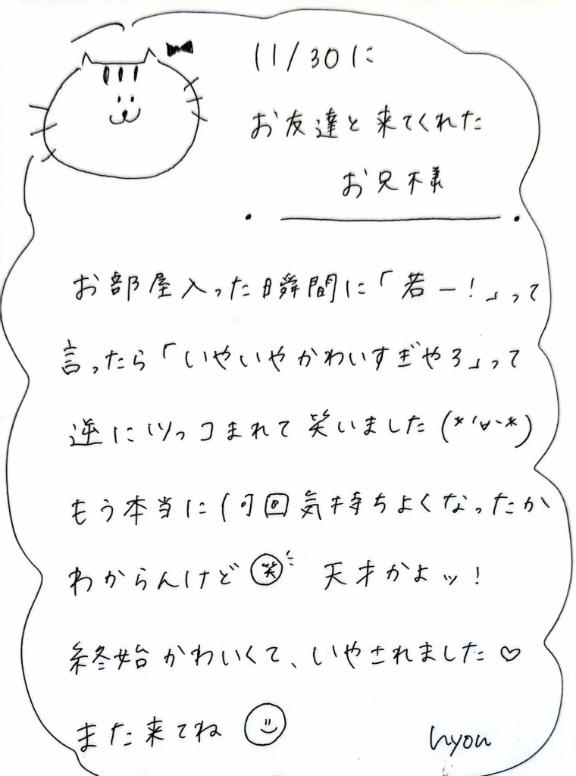 11/30に
お友達と来てくれた
お兄様
お部屋入った瞬間に「若ー!」って
言ったら「いやいやかわいすぎやろ」って
逆にツっコまれて笑いました(*'∀'*)
もう本当に何回気持ちよくなったか
わからんけど㊗笑 天才かよッ!
終始かわいくて、いやされました♡
また来てね☺